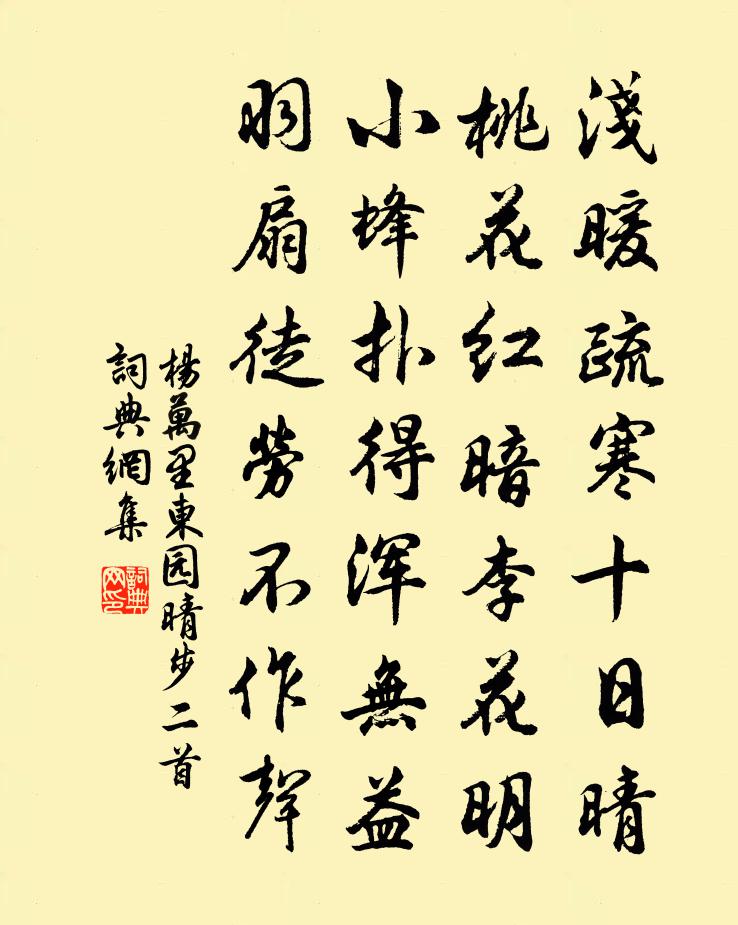 淺暖疏寒十日晴
桃花红暗李花明
小蜂扑得浑無益
羽扇徒勞不作聲
楊萬里東园晴步二首
詞典網集
詞典网印